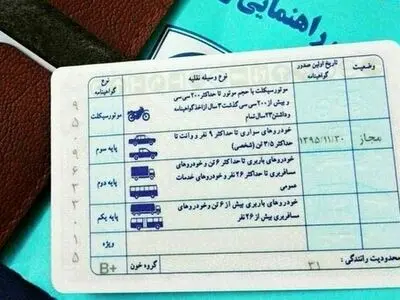 راهنمایی و
وضعیت
تاریخ اولین صدور گواهینامه
نوع وسیله نقلیه
نوع گواهینامه
موتورسیکلت با حجم موتور تا حداکثر ۲۰۰ سی سی
و بیش از ۲۰۰ سی سی گذشت ۳ سال از اخذ گواهینامه
و داشتن ۲۳ سال تمام
موتورسیکلت
مجاز
۱۳۹۵/۱۱/۳۰
خودروهای سواری تا حداکثر ۹ نفر و وانت تا
حداکثر ۳/۵ تن (شخصی)
پایه سوم
خودروهای باربری تا حداکثر ۶ تن و خودروهای
مسافربری تا حداکثر ۲۶ نفر و خودروهای خدمات
عمومی
پایه دوم
خودروهای باربری بیش از ۶ تن و خودروهای
مسافربری بیش از ۲۶ نفر
پایه یکم
ویژه
محدودیت رانندگی :
۳۱
گروه خون
B+